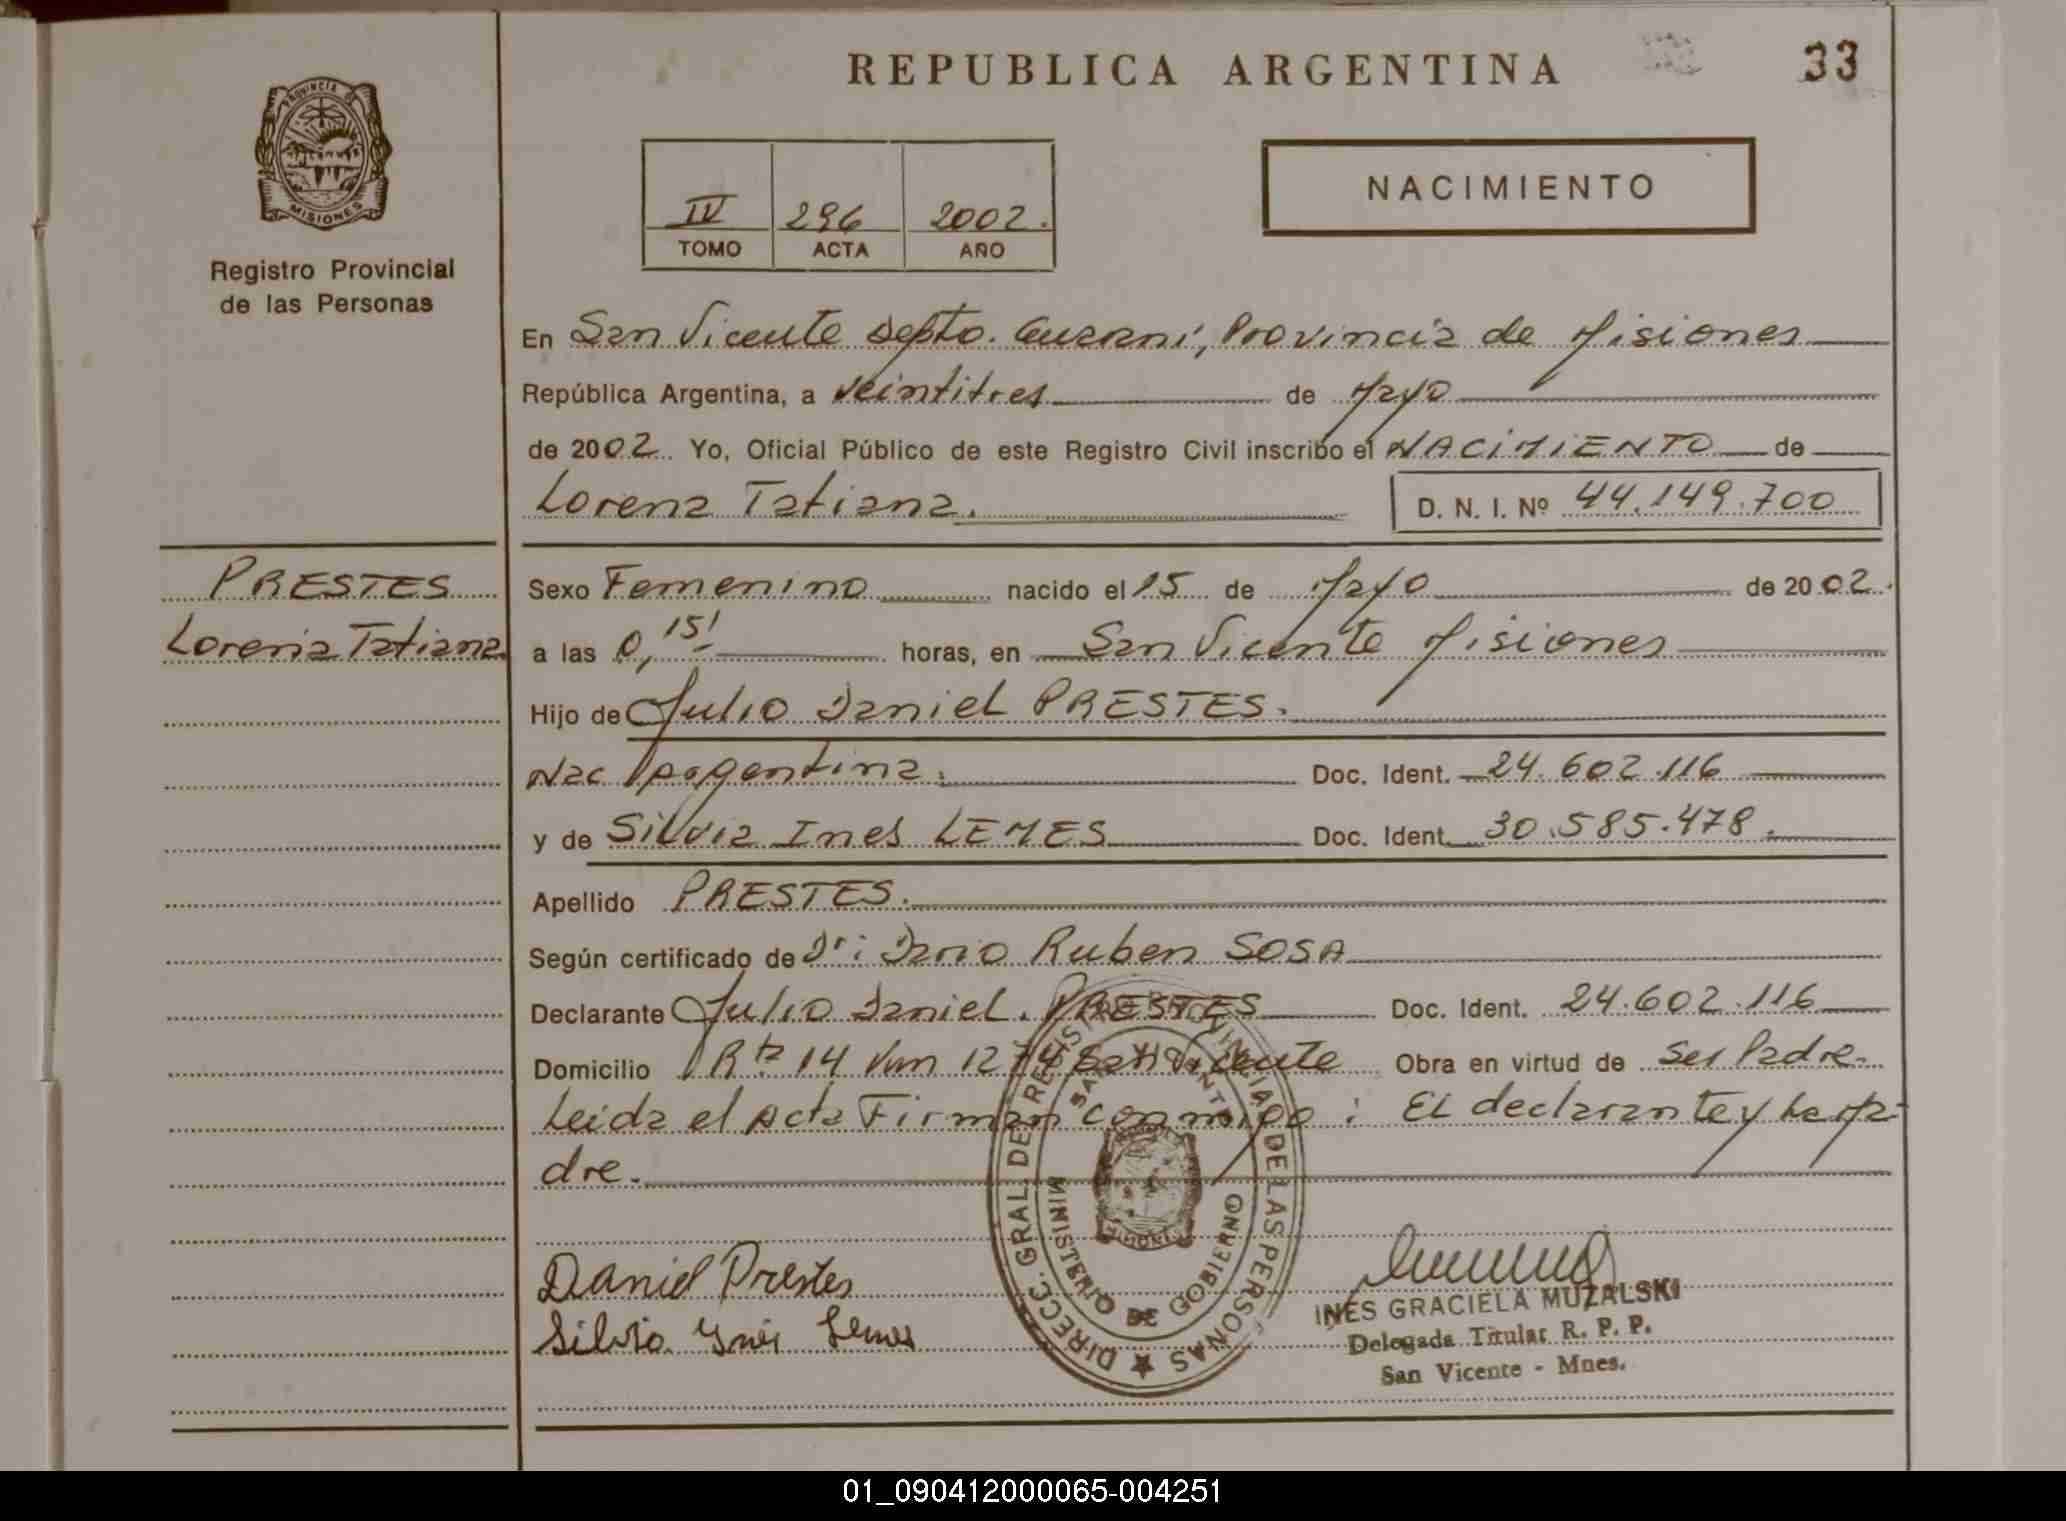 REPUBLICA ARGENTINA
33
PROVINCIA DE
MISIONES
Registro Provincial
de las Personas
IV 296 2002.
TOMO ACTA AÑO
NACIMIENTO
En San Vicente Depto. Guarani, Provincia de Misiones
República Argentina, a veintitres de Mayo
de 2002. Yo, Oficial Público de este Registro Civil inscribo el NACIMIENTO de
Lorena Tatiana.
D. N. I. Nº 44.149.700
PRESTES
Lorena Tatiana
Sexo Femenino nacido el 15 de Mayo de 2002.
a las 0,15' horas, en San Vicente Misiones
Hijo de Julio Daniel PRESTES.
Nac Argentina. Doc. Ident. 24.602.116
y de Silvia Ines LEMES Doc. Ident. 30.585.478.
Apellido PRESTES.
Según certificado de Dr: Dario Ruben SOSA
Declarante Julio Daniel. PRESTES Doc. Ident. 24.602.116
Domicilio Rta 14 Km 1274 San Vicente Obra en virtud de Ser Padre.
Leida el Acta Firman conmigo: EL declarante y La Ma-
dre.
DIRECC. GRAL. DE REGISTRO PROVINCIAL DE LAS PERSONAS
SAN VICENTE
MINISTERIO DE GOBIERNO
Daniel Prestes
Silvia Ines Lemes
INES GRACIELA MUZALSKI
Delegada Titular R. P. P.
San Vicente - Mnes.
01_090412000065-004251